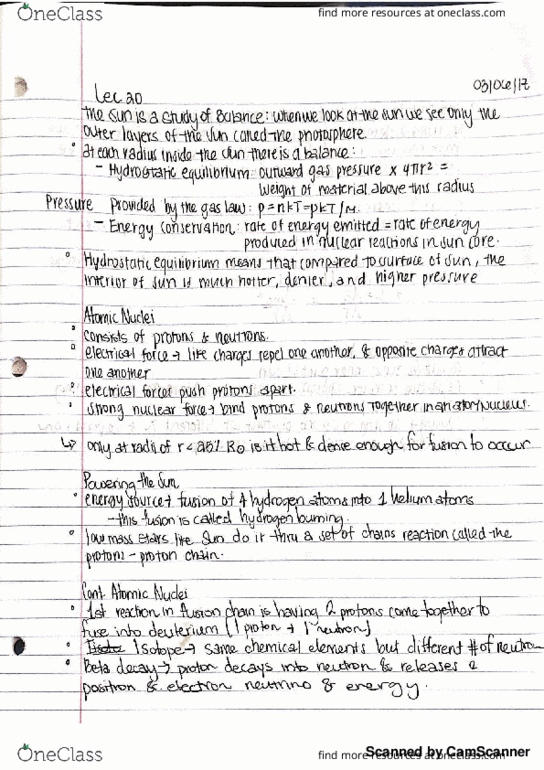 OneClass
find more resources at oneclass.com
Lec 20
03/06/17
The Sun is a Study of Balance: when we look at the sun we see only the
outer layers of the sun called the photosphere.
• at each radius inside the sun there is a balance:
- Hydrostatic equilibrium: outward gas pressure x 4πr² =
weight of material above this radius
Pressure Provided by the gas law: p=nkT=ρkT/M.
- Energy conservation: rate of energy emitted = rate of energy
produced in nuclear reactions in sun core.
• Hydrostatic equilibrium means that compared to surface of sun, the
interior of sun is much hotter, denier, and higher pressure
Atomic Nuclei
• consists of protons & neutrons.
• electrical force → like charges repel one another, & opposite charges attract
one another
• electrical forces push protons apart.
• strong nuclear force → bind protons & neutrons together in an atomic nucleus.
↳ only at radii of r < 25% R⊙ is it hot & dense enough for fusion to occur
Powering the Sun
• energy source → fusion of 4 hydrogen atoms into 1 helium atoms
- this fusion is called hydrogen burning.
• low mass stars like Sun do it thru a set of chains reaction called the
proton - proton chain.
Cont. Atomic Nuclei
• 1st reaction in fusion chain is having 2 protons come together to
fuse into deuterium (1 proton + 1 neutron)
• Isotope → same chemical elements but different # of neutron
• Beta decay → proton decays into neutron & releases a
positron & electron neutrino & energy.
Scanned by CamScanner
OneClass
find more resources at oneclass.com